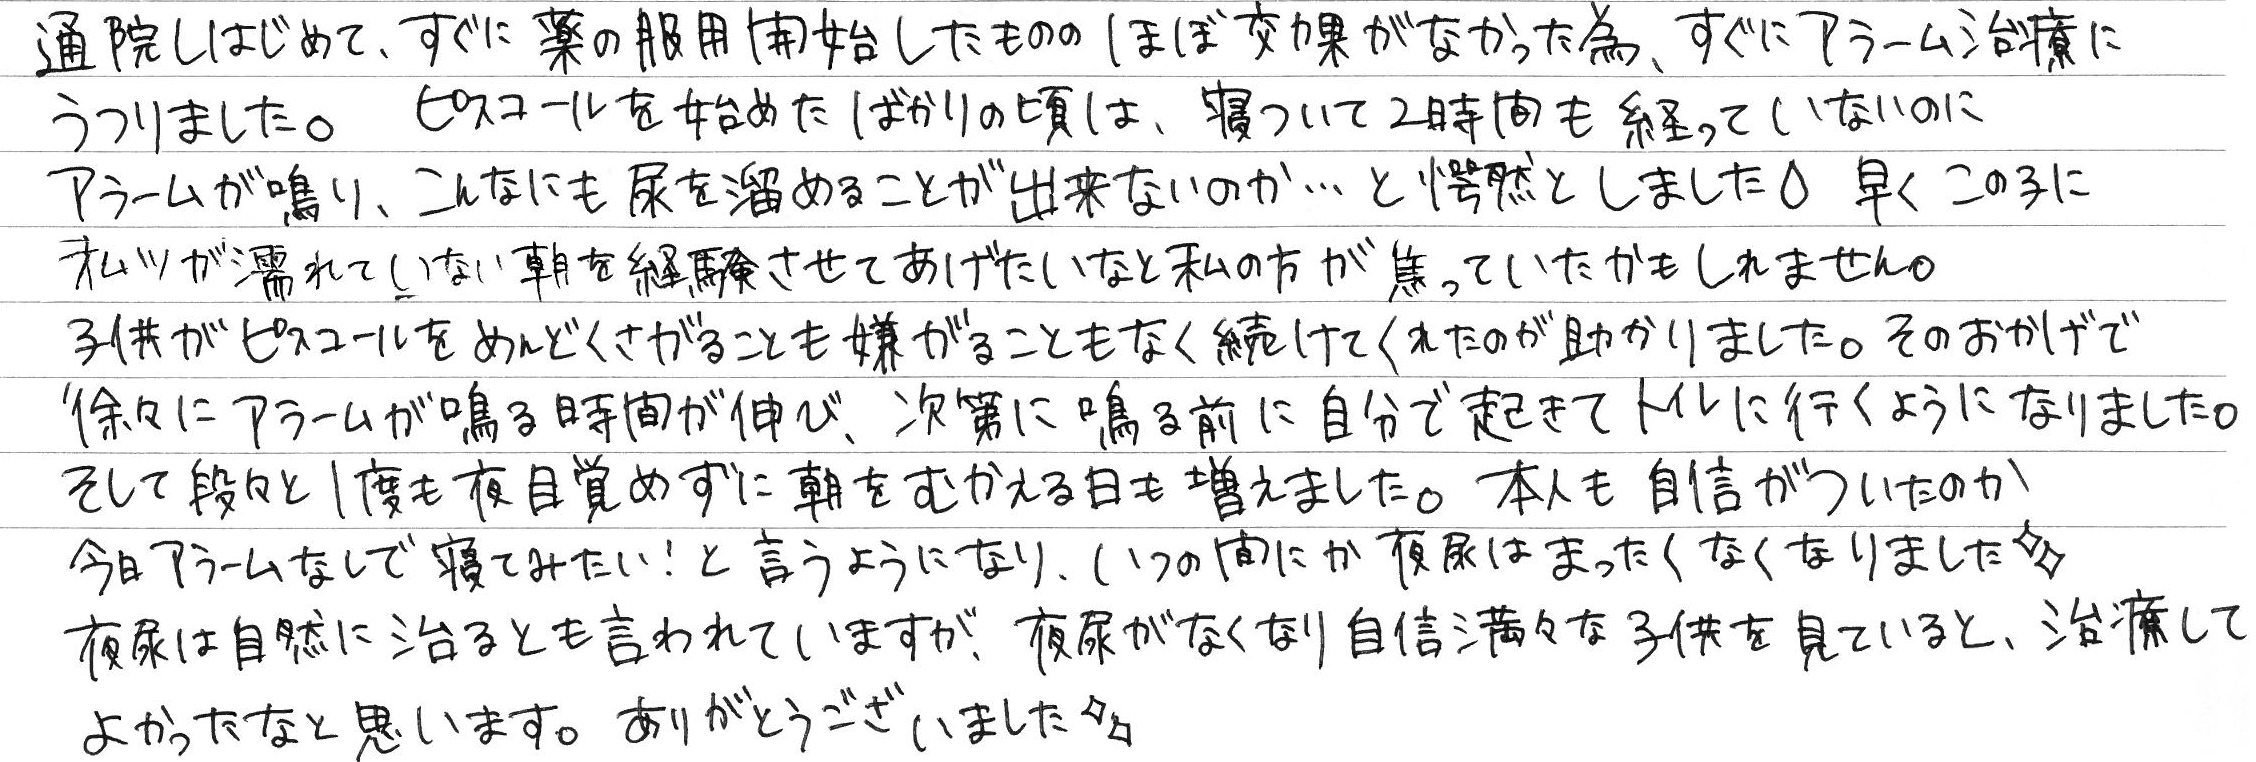 通院しはじめて、すぐに薬の服用開始したもののほぼ効果がなかった為、すぐにアラーム治療に
うつりました。 ピスコールを始めたばかりの頃は、寝ついて2時間も経っていないのに
アラームが鳴り、こんなにも尿を溜めることが出来ないのか…と愕然としました💧 早くこの子に
オムツが濡れていない朝を経験させてあげたいなと私の方が焦っていたかもしれません。
子供がピスコールをめんどくさがることも嫌がることもなく続けてくれたのが助かりました。そのおかげで
徐々にアラームが鳴る時間が伸び、次第に鳴る前に自分で起きてトイレに行くようになりました。
そして段々と1度も夜目覚めずに朝をむかえる日も増えました。本人も自信がついたのか
今日アラームなしで寝てみたい!と言うようになり、いつの間にか夜尿はまったくなくなりました✨
夜尿は自然に治るとも言われていますが、夜尿がなくなり自信満々な子供を見ていると、治療して
よかったなと思います。ありがとうございました✨